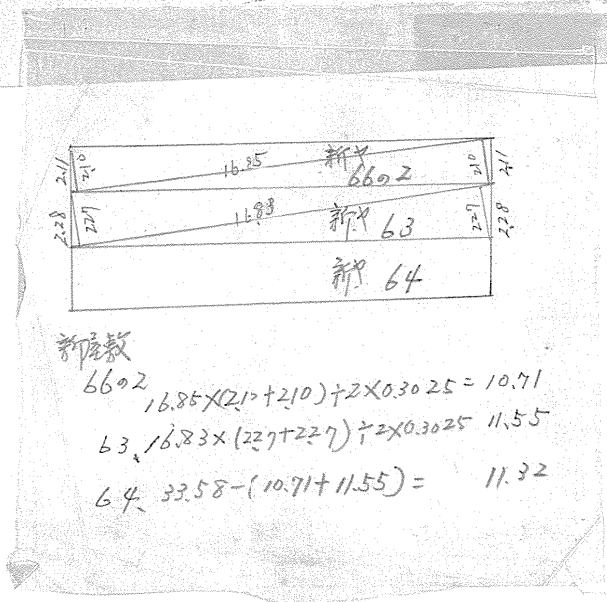 2.11
2.10
16.85
新や
66の2
2.10
2.11
2.28
2.27
16.83
新や 63
2.27
2.28
新や 64
新屋敷
66の2
16.85×(2.10+2.10)÷2×0.3025=10.71
63、16.83×(2.27+2.27)÷2×0.3025 11.55
64、33.58-(10.71+11.55)= 11.32